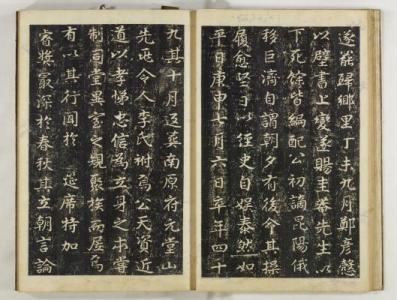 遂罷歸鄉里丁未九月鄭彥慤
以壁書上變遂賜圭菴先生以
下死餘皆編配公初謫昆陽俄
移巨濟自謂朝夕有後命其操
履愈堅日以經史自娛泰然如
平日庚申七月六日卒年四十
九其十月返葬南原府元堂山
先兆令人李氏祔焉公天資近
道以孝悌忠信爲立身之本嘗
制同堂異宮之規聚族而居焉
有以其行聞於筵席特加
睿奬最深於春秋其立朝言論